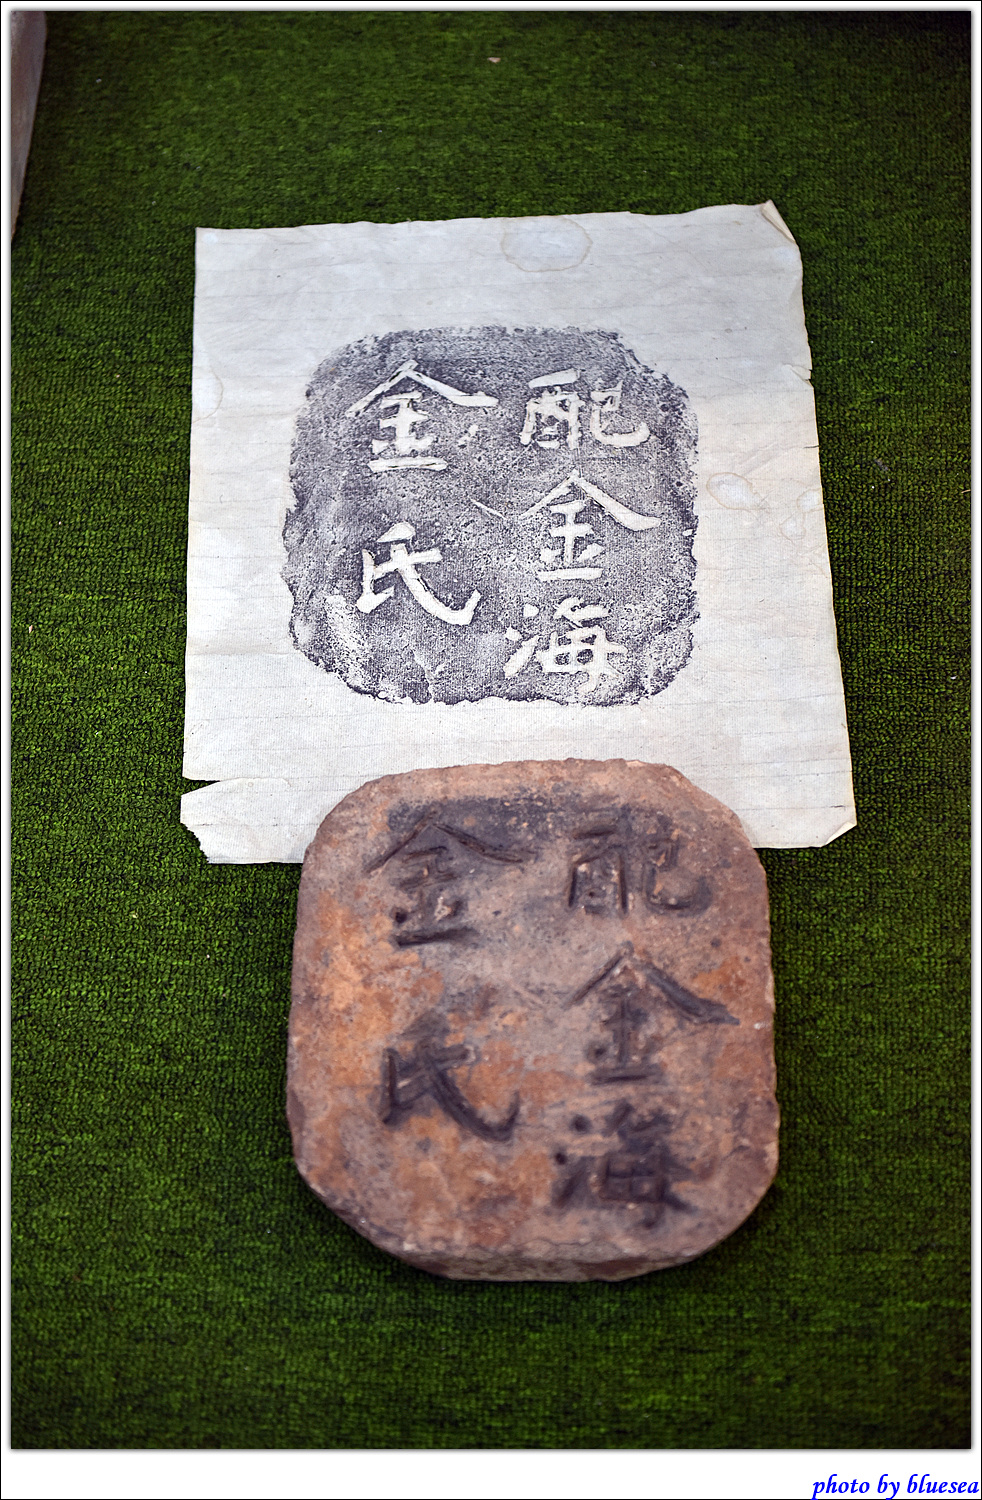 配金海
金氏
配金海
金氏
photo by bluesea